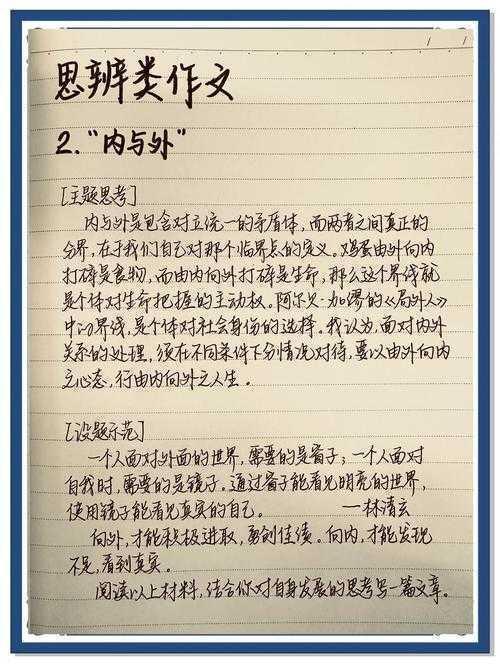 思辨类作文
2.“内与外”
[主题思考]
内与外是包含对立统一的矛盾体，而两者之间真正的
分界，在于我们自己对那个临界点的定义。鸡蛋由外向内
打碎是食物，而由内向外打碎是生命，那么这个界线就
是个体对生命把握的主动权。阿尔贝·加缪的《局外人》
中的界线，是个体对社会身份的选择。我认为，面对内外
关系的处理，须在不同条件下分情况对待，要以由外向内
之心态，行由内向外之人生。
[设题示范]
一个人面对外面的世界，需要的是窗子；一个人面对
自我时，需要的是镜子。通过窗子能看见明亮的世界，
使用镜子能看见真实的自己。 ——林清玄
向外，才能积极进取，勇创佳绩。向内，才能发现
不足，看到真实。
阅读以上材料，结合你对自身发展的思考写一篇文章。